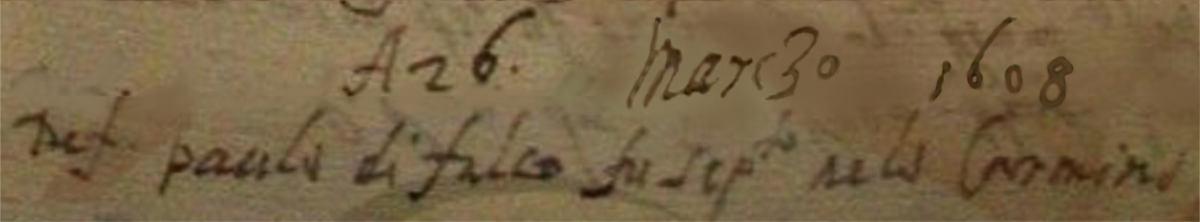 A 26. Marczo 1608
Nef. paulo di falco fu septo nelo Carmino